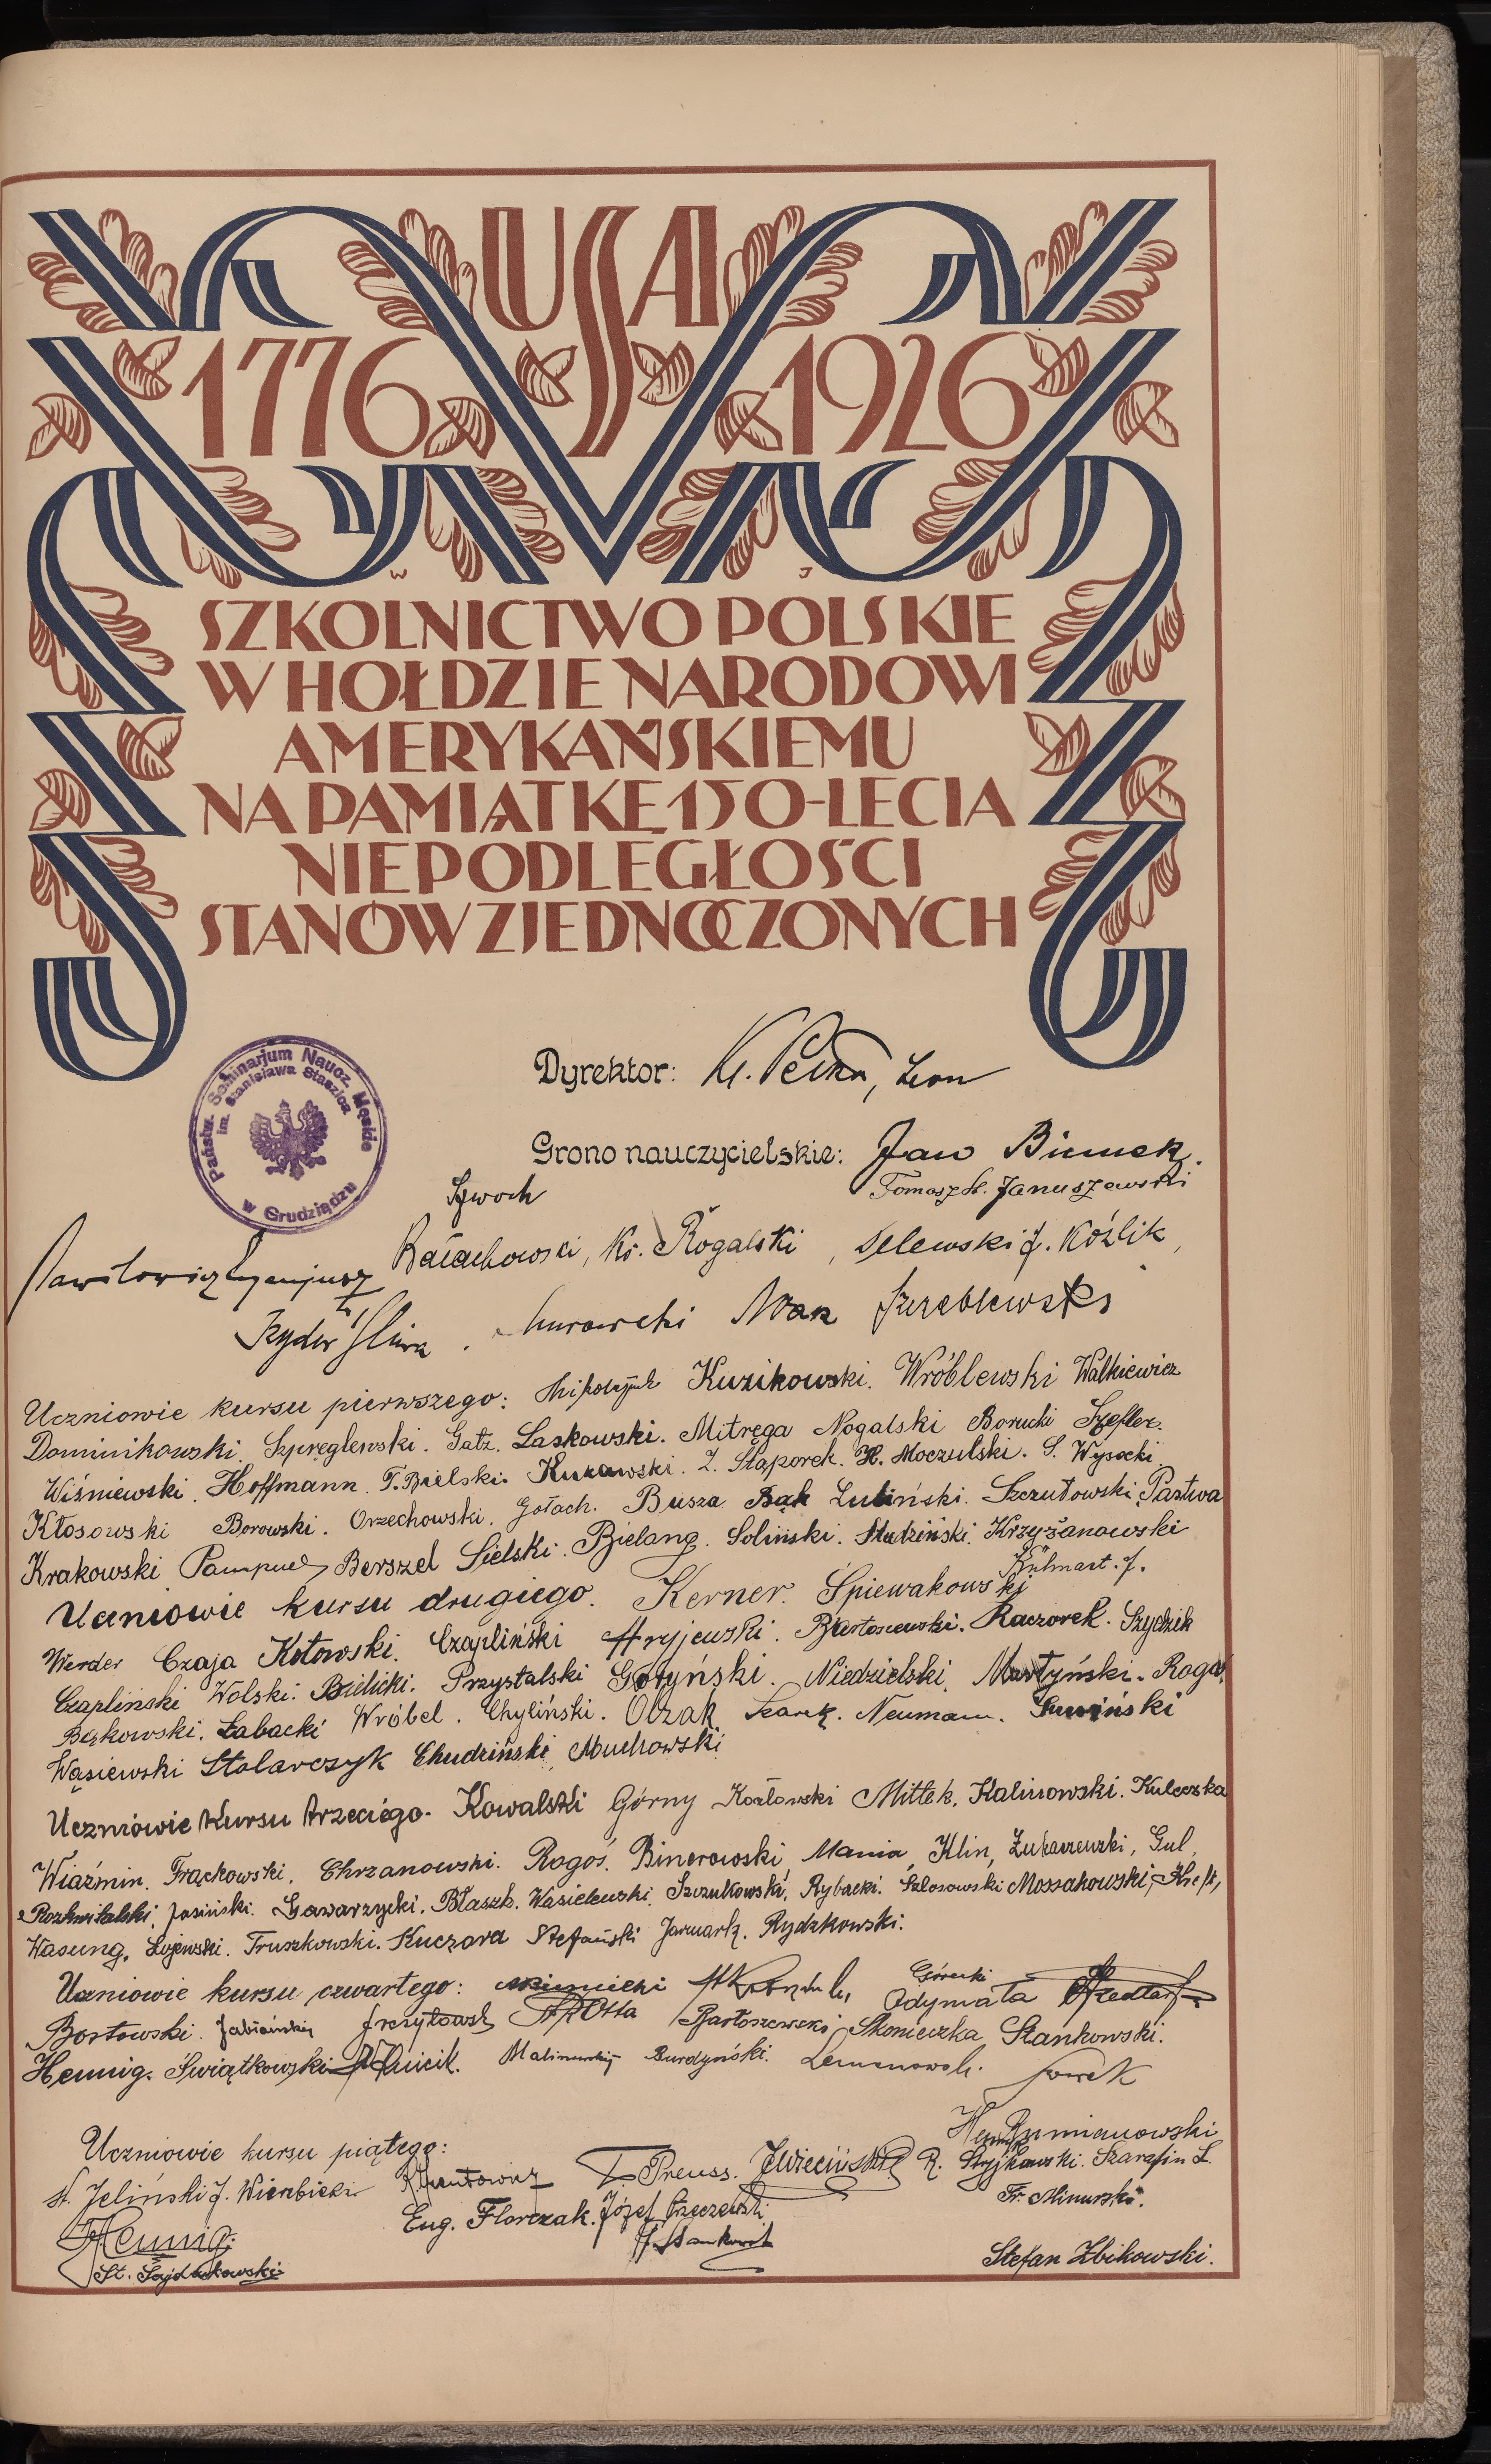 USA
1776 1926
W J
SZKOLNICTWO POLSKIE
W HOŁDZIE NARODOWI
AMERYKAŃSKIEMU
NA PAMIĄTKĘ 150-LECIA
NIEPODLEGŁOŚCI
STANÓW ZJEDNOCZONYCH
Państw. Seminarjum Naucz. Męskie
im. Stanisława Staszica
w Grudziądzu
Dyrektor: Leon
Grono nauczycielskie: Jan
Tomasz St. Januszewski
Szwoch
Bałachowski, Ks. Rogalski, Selewski J. Koźlik,
Izydor Śliwa
Uczniowie kursu pierwszego: Kuzikowski. Wróblewski Walkiewicz
Dominikowski. Szpręglewski. Gatz. Laskowski. Mitręga Nogalski Borucki Szefler.
Wiśniewski. Hoffmann. T. Bielski. Kurawski. Z. Stąporek. H. Moczulski. S. Wysocki.
Kłosowski Borowski. Orzechowski. Gołach. Busza Bąk Lubiński. Szczutowski, Pastwa
Krakowski Pampuch Berszel Sielski. Bielang. Soliński. Studziński. Krzyżanowski
Kühnast. J.
Uczniowie kursu drugiego. Kerner. Śpiewakowski
Werder Czaja Kotowski. Czapliński Bartoszewski. Kaczorek. Szydzik
Czapliński Wolski. Bielicki. Przystalski Gołyński. Niedzielski. Martyński. Roga.
Bąkowski. Łabacki Wróbel. Chyliński. Olzak Neumann. Suwiński
Wąsiewski Stolarczyk Chudziński, Muchowski
Uczniowie kursu trzeciego. Kowalski Górny Kozłowski Mittek. Kalinowski. Kuleczka
Wiaźmin. Frąckowski. Chrzanowski. Rogoś. Binerowski, Mania, Klin, Żukaszewski, Gul,
Rozkwitalski, Jasiński. Gawarzycki. Błaszk. Wasielewski. Szczutkowski, Rybacki. Szlosowski Mossakowski, Kreft,
Wasung. Łojewski. Truszkowski. Kuczora Stefański Jarmark. Rydzkowski.
Uczniowie kursu czwartego: Górecki Odymała
Bortowski. Jabłoński Otta Bartoszewski Skonieczka Stankowski.
Hennig. Świątkowski Malinowski Burdyński.
Uczniowie kursu piątego: Henryk Rumianowski
St. Jeliński J. Wierzbicki T. Preuss. R. Stryjkowski. Szarafin L.
Eug. Florczak. Józef Fr. Minurski.
Hennig.
Stefan Zbikowski.